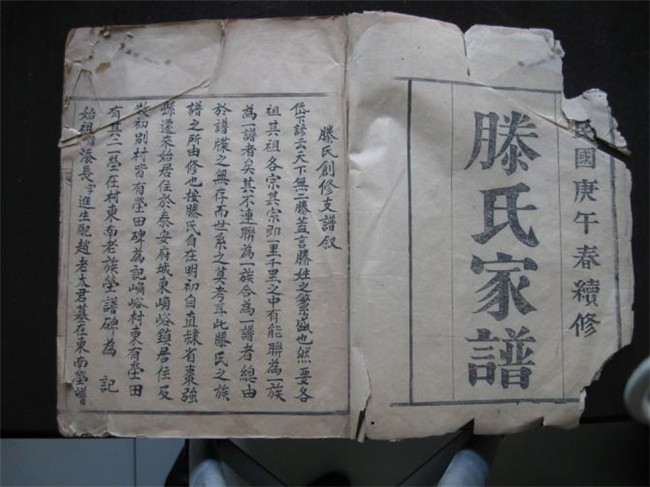 民國庚午春續修
滕氏家譜
滕氏創修支譜叙
岱下諺云天下無二滕蓋言滕姓之繁盛也然要各
祖其祖各宗其宗即一里千里之中有能聯為一族
為一譜者矣其不連聯為一族合為一譜者總由
於譜牒之無存而世系之莫考耳此滕氏之族
譜之所由修也按滕氏自在明初自直隸省棗強
縣遷來始居住於泰安府城東嶼峪鎮居住及
數初别村皆有塋田碑為記嶼峪村東有塋田
有其二一塋在村東南老族塋譜碑為 記
始祖 諱 長字進生配趙老太君墓在東南塋譜